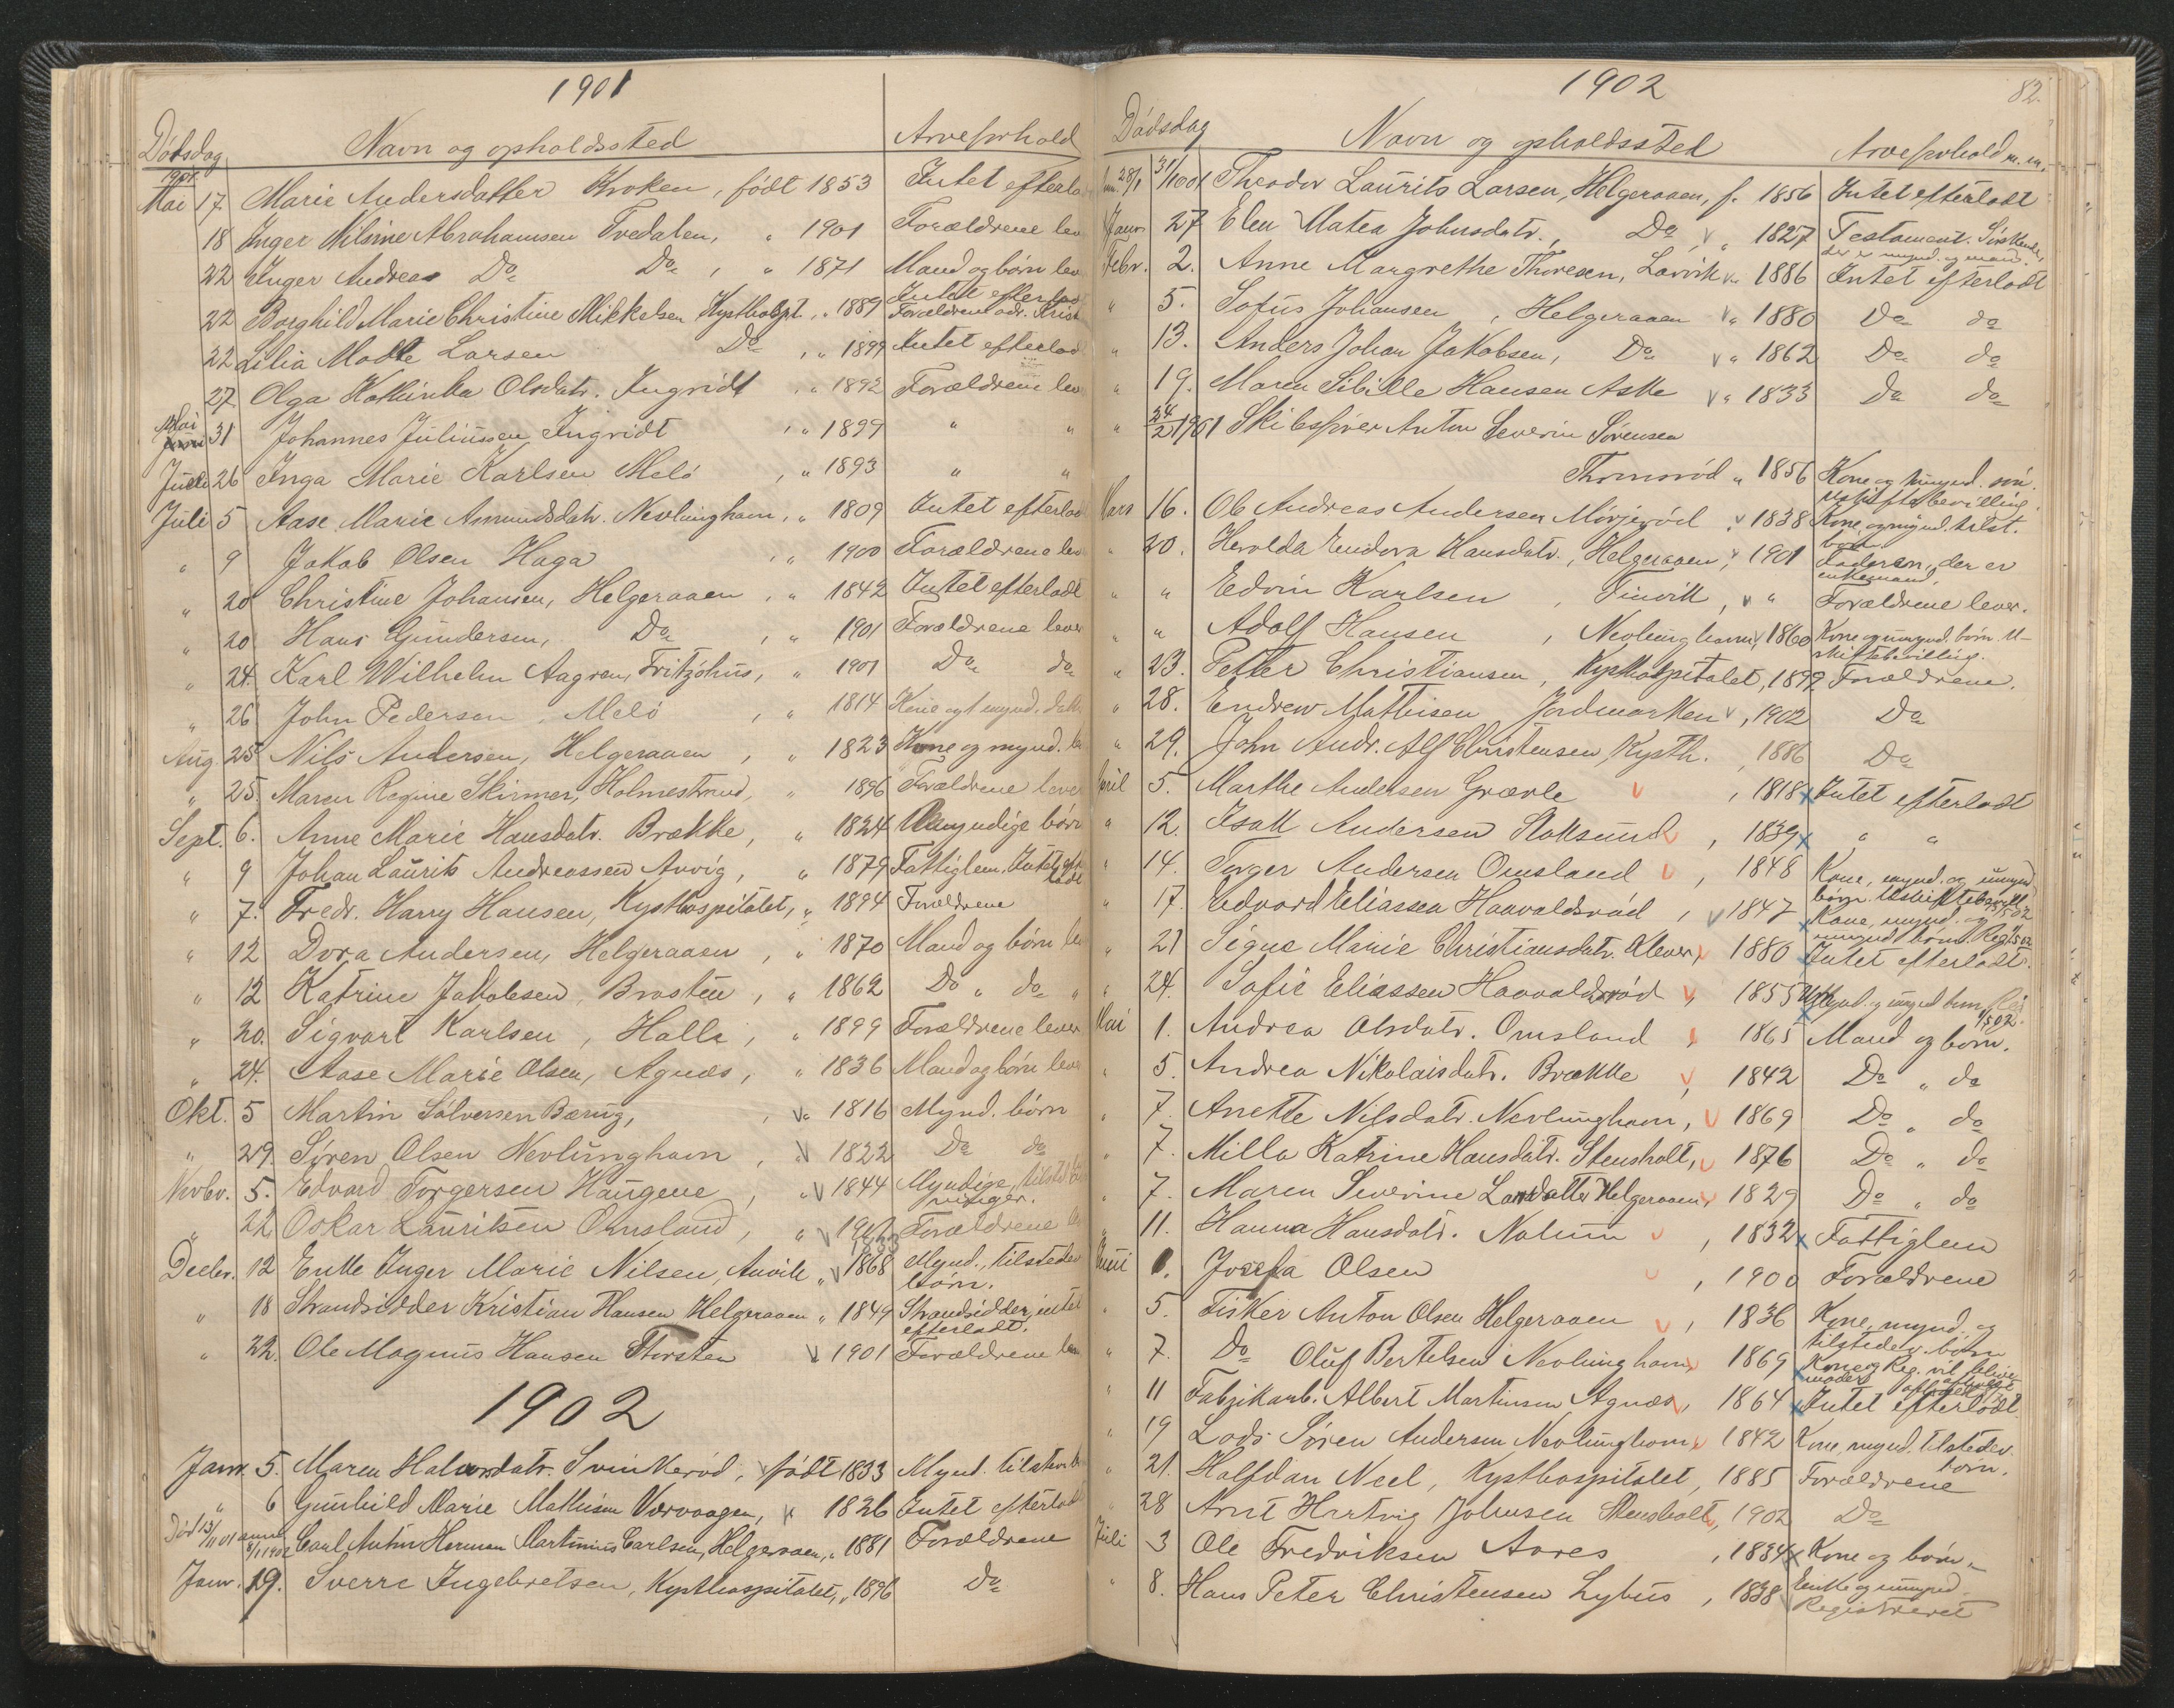 1901
Dødsdag Navn og opholdssted Arveforhold
1901
Mai 17 Marie Andersdatter Kroken, født 1853 Intet efterla
18 Inger Nilsine Abrahamsen Tvedalen, " 1901 Forældrene lev
22 Inger Andreas Do Do, " 1871 Mand og børn lev
22 Borghild Marie Christine Mikkelsen Kysthospt. " 1889 Intet efterlad
Forældrene
22 Lilia Madle Larsen Do, " 1899 Intet efterlad
27 Olga Kathinka Olsdatr. Ingridt " 1892 Forældrene lev
Mai 31 Johannes Juliussen Ingridt " 1899 " "
Juni 26 Inga Marie Karlsen Melø, " 1893 " "
Juli 5 Aase Marie Amundsdatr. Nevlunghavn, " 1809 Intet efterlad
" 9 Jakob Olsen Haga, " 1900 Forældrene lev
" 20 Christine Johansen, Helgeraaen, " 1842 Intet efterladt
" 20 Hans Gundersen, Do, " 1901 Forældrene lever
" 24. Karl Wilhelm Aagren, Fritzøhus, " 1901 Do do
" 26 John Pedersen, Melø, " 1814 Kone og 1 mynd. datt.
Aug. 25 Nils Andersen, Helgeraaen, " 1823 Kone og mynd. b
" 25. Maren Regine Skirmer, Holmestrand, " 1896 Forældrene lever
Sept. 6. Anne Marie Hansdatr. Brække, " 1824 Umyndige børn
" 9 Johan Laurits Andreassen Anvig, " 1879 Fattiglem, Intet efter
ladt
" 7. Fredr. Harry Hansen, Kysthospitalet, " 1894 Forældrene
" 12 Dora Andersen, Helgeraaen, " 1870 Mand og børn lev
" 12 Katrine Jakobsen, Brosten, " 1862 Do " do "
" 20. Sigvart Karlsen, Halle, " 1899 Forældrene lever
" 24. Aase Marie Olsen, Agnæs, " 1836 Mand og børn leve
Okt. 5 Martin Sølversen Bærug, " 1816 Mynd. børn
" 29. Søren Olsen Nevlunghavn, " 1822 Do do
Novbr. 5. Edvard Torgersen Haugene, " 1844 Myndige, tilsted.
" 22 Oskar Lauritsen Omsland, " 1901 Forældrene
1833
Decbr. 12 Enke Inger Marie Nilsen, Anvik " 1868 Mynd., tilstedev
børn.
" 18 Strandsidder Kristian Hansen Helgeraaen " 1849 Strandsidder, intet
efterladt.
" 22. Ole Magnus Hansen Torsten 1901 Forældrene lev
1902
Janr. 5. Maren Halvordatr. Svinkerød, født 1833 Mynd. tilstev. b
" 6 Gunhild Marie Mathisen Vorvaagen, " 1826 Intet efterlad
Død 13/11 01 anm. 8/1 1902 Carl Anton Herman Martinius Carlsen, Helgeraaen, " 1881 Forældrene
Janr. 19. Sverre Ingebretsen, Kysthospitalet, " 1896 Do
1902
82.
Dødsdag Navn og opholdssted Arveforhold m.m.
28/1 31/1001 Theodor Laurits Larsen, Helgeraaen, f. 1856 Intet efterladt
Janr. 27 Elen Matea Johnsdatr., Do " 1827 Testament. Søskende,
der er mynd. og
Febr. 2. Anne Margrethe Thoresen, Larvik " 1886 Intet efterladt
" 5. Sofus Johansen, Helgeraaen " 1880 Do do
" 13. Anders Johan Jakobsen, Do " 1862 Do do
" 19. Maren Sibille Hansen Aske " 1833 Do do
" 24/2 1901 Skibsfører Anton Severin Sørensen
Thomsrød " 1856 Kone og umynd. søn.
uskiftebevilling.
Mars 16. Ole Andreas Andersen Mørjerød, 1838 Kone og mynd. tilst.
børn
" 20. Herolda Endora Hansdatr., Helgeraaen, 1901 Faderen, der er
enkemand.
" " Edvin Karlsen, Tinvik, " Forældrene lever.
" " Adolf Hansen, Nevlunghavn, 1860 Kone og umynd. børn. U-
skiftebevilling.
" 23. Petter Christiansen, Kysthospitalet, 1892 Forældrene.
" 28. Endrew Mathisen Jordmarken, 1902 Do
" 29. John Andr. Alf Christensen, Kysth., 1886 Do
April 5. Marthe Andersen Grævle, 1818 Intet efterladt
" 12. Isak Andersen Staksund, 1839 " "
" 14. Torger Andersen Omsland, 1848 Kone, mynd. og umynd
børn. Uskiftebevill
" 17. Edvard Eliassen Haavaldsrød, 1847 Kone, mynd. og
umynd børn. Reg.
" 21 Signe Marie Christiansdatr. Klever, 1880 Intet efterladt.
" 24. Sofie Eliassen Haavaldsrød 1855 mynd. og umynd børn
Mai 1. Andrea Olsdatr. Omsland 1865 Mand og børn.
" 5. Andrea Nikolaisdatr. Brække 1842 Do " do
" 7. Anette Nilsdatr. Nevlunghavn, 1869 Do " do
" 7. Milla Katrine Hansdatr. Stensholt, 1876 Do " do
" 7. Maren Severine Larsdatter Helgeraaen 1829 Do " do
" 11. Hanna Hansdatr. Nalum, 1832 Fattiglem
Juni 1. Josefa Olsen, 1900 Forældrene
" 5. Fisker Anton Olsen Helgeraaen, 1836 Kone, mynd. og
tilstedev. børn
" 7. Do Oluf Bertelsen Nevlunghavn 1869 Kone og Reg. vil blive
moder
" 11 Fabrikarb. Albert Martinsen Agnæs, 1864 Intet efterladt
" 19 Lods Søren Andersen Nevlunghavn 1842 Kone, mynd. tilstedev.
børn.
" 21. Halfdan Neel, Kysthospitalet, 1885 Forældrene
" 28 Arnt Hartvig Johnsen Stensholt, 1902 Do
Juli 3 Ole Fredriksen Aares, 1834 Kone og børn.
" 8. Hans Peter Christensen Lybus, 1838 Enke og umynd.
Registreret